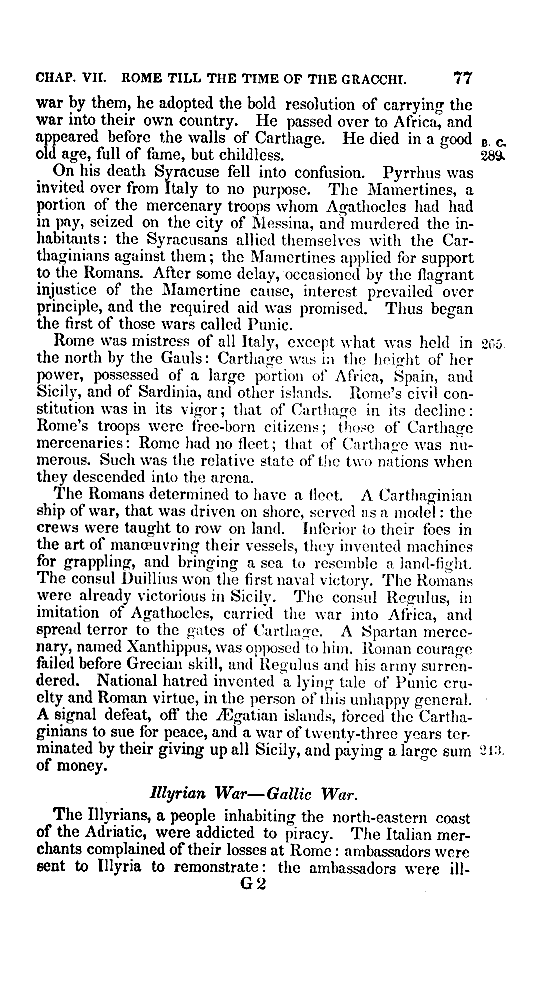 CHAP. VII. ROME TILL THE TIME OF THE GRACCHI. 77
war by them, he adopted the bold resolution of carrying the
war into their own country. He passed over to Africa, and
appeared before the walls of Carthage. He died in a good B. C.
old age, full of fame, but childless. 289.
On his death Syracuse fell into confusion. Pyrrhus was
invited over from Italy to no purpose. The Mamertines, a
portion of the mercenary troops whom Agathocles had had
in pay, seized on the city of Messina, and murdered the in-
habitants: the Syracusans allied themselves with the Car-
thaginians against them; the Mamertines applied for support
to the Romans. After some delay, occasioned by the flagrant
injustice of the Mamertine cause, interest prevailed over
principle, and the required aid was promised. Thus began
the first of those wars called Punic.
Rome was mistress of all Italy, except what was held in 265.
the north by the Gauls: Carthage was in the height of her
power, possessed of a large portion of Africa, Spain, and
Sicily, and of Sardinia, and other islands. Rome's civil con-
stitution was in its vigor; that of Carthage in its decline:
Rome's troops were free-born citizens; those of Carthage
mercenaries: Rome had no fleet; that of Carthage was nu-
merous. Such was the relative state of the two nations when
they descended into the arena.
The Romans determined to have a fleet. A Carthaginian
ship of war, that was driven on shore, served as a model: the
crews were taught to row on land. Inferior to their foes in
the art of manœuvring their vessels, they invented machines
for grappling, and bringing a sea to resemble a land-fight.
The consul Duillius won the first naval victory. The Romans
were already victorious in Sicily. The consul Regulus, in
imitation of Agathocles, carried the war into Africa, and
spread terror to the gates of Carthage. A Spartan merce-
nary, named Xanthippus, was opposed to him. Roman courage
failed before Grecian skill, and Regulus and his army surren-
dered. National hatred invented a lying tale of Punic cru-
elty and Roman virtue, in the person of this unhappy general.
A signal defeat, off the Ægatian islands, forced the Cartha-
ginians to sue for peace, and a war of twenty-three years ter-
minated by their giving up all Sicily, and paying a large sum 243.
of money.
Illyrian War—Gallic War.
The Illyrians, a people inhabiting the north-eastern coast
of the Adriatic, were addicted to piracy. The Italian mer-
chants complained of their losses at Rome: ambassadors were
sent to Illyria to remonstrate: the ambassadors were ill-
G 2